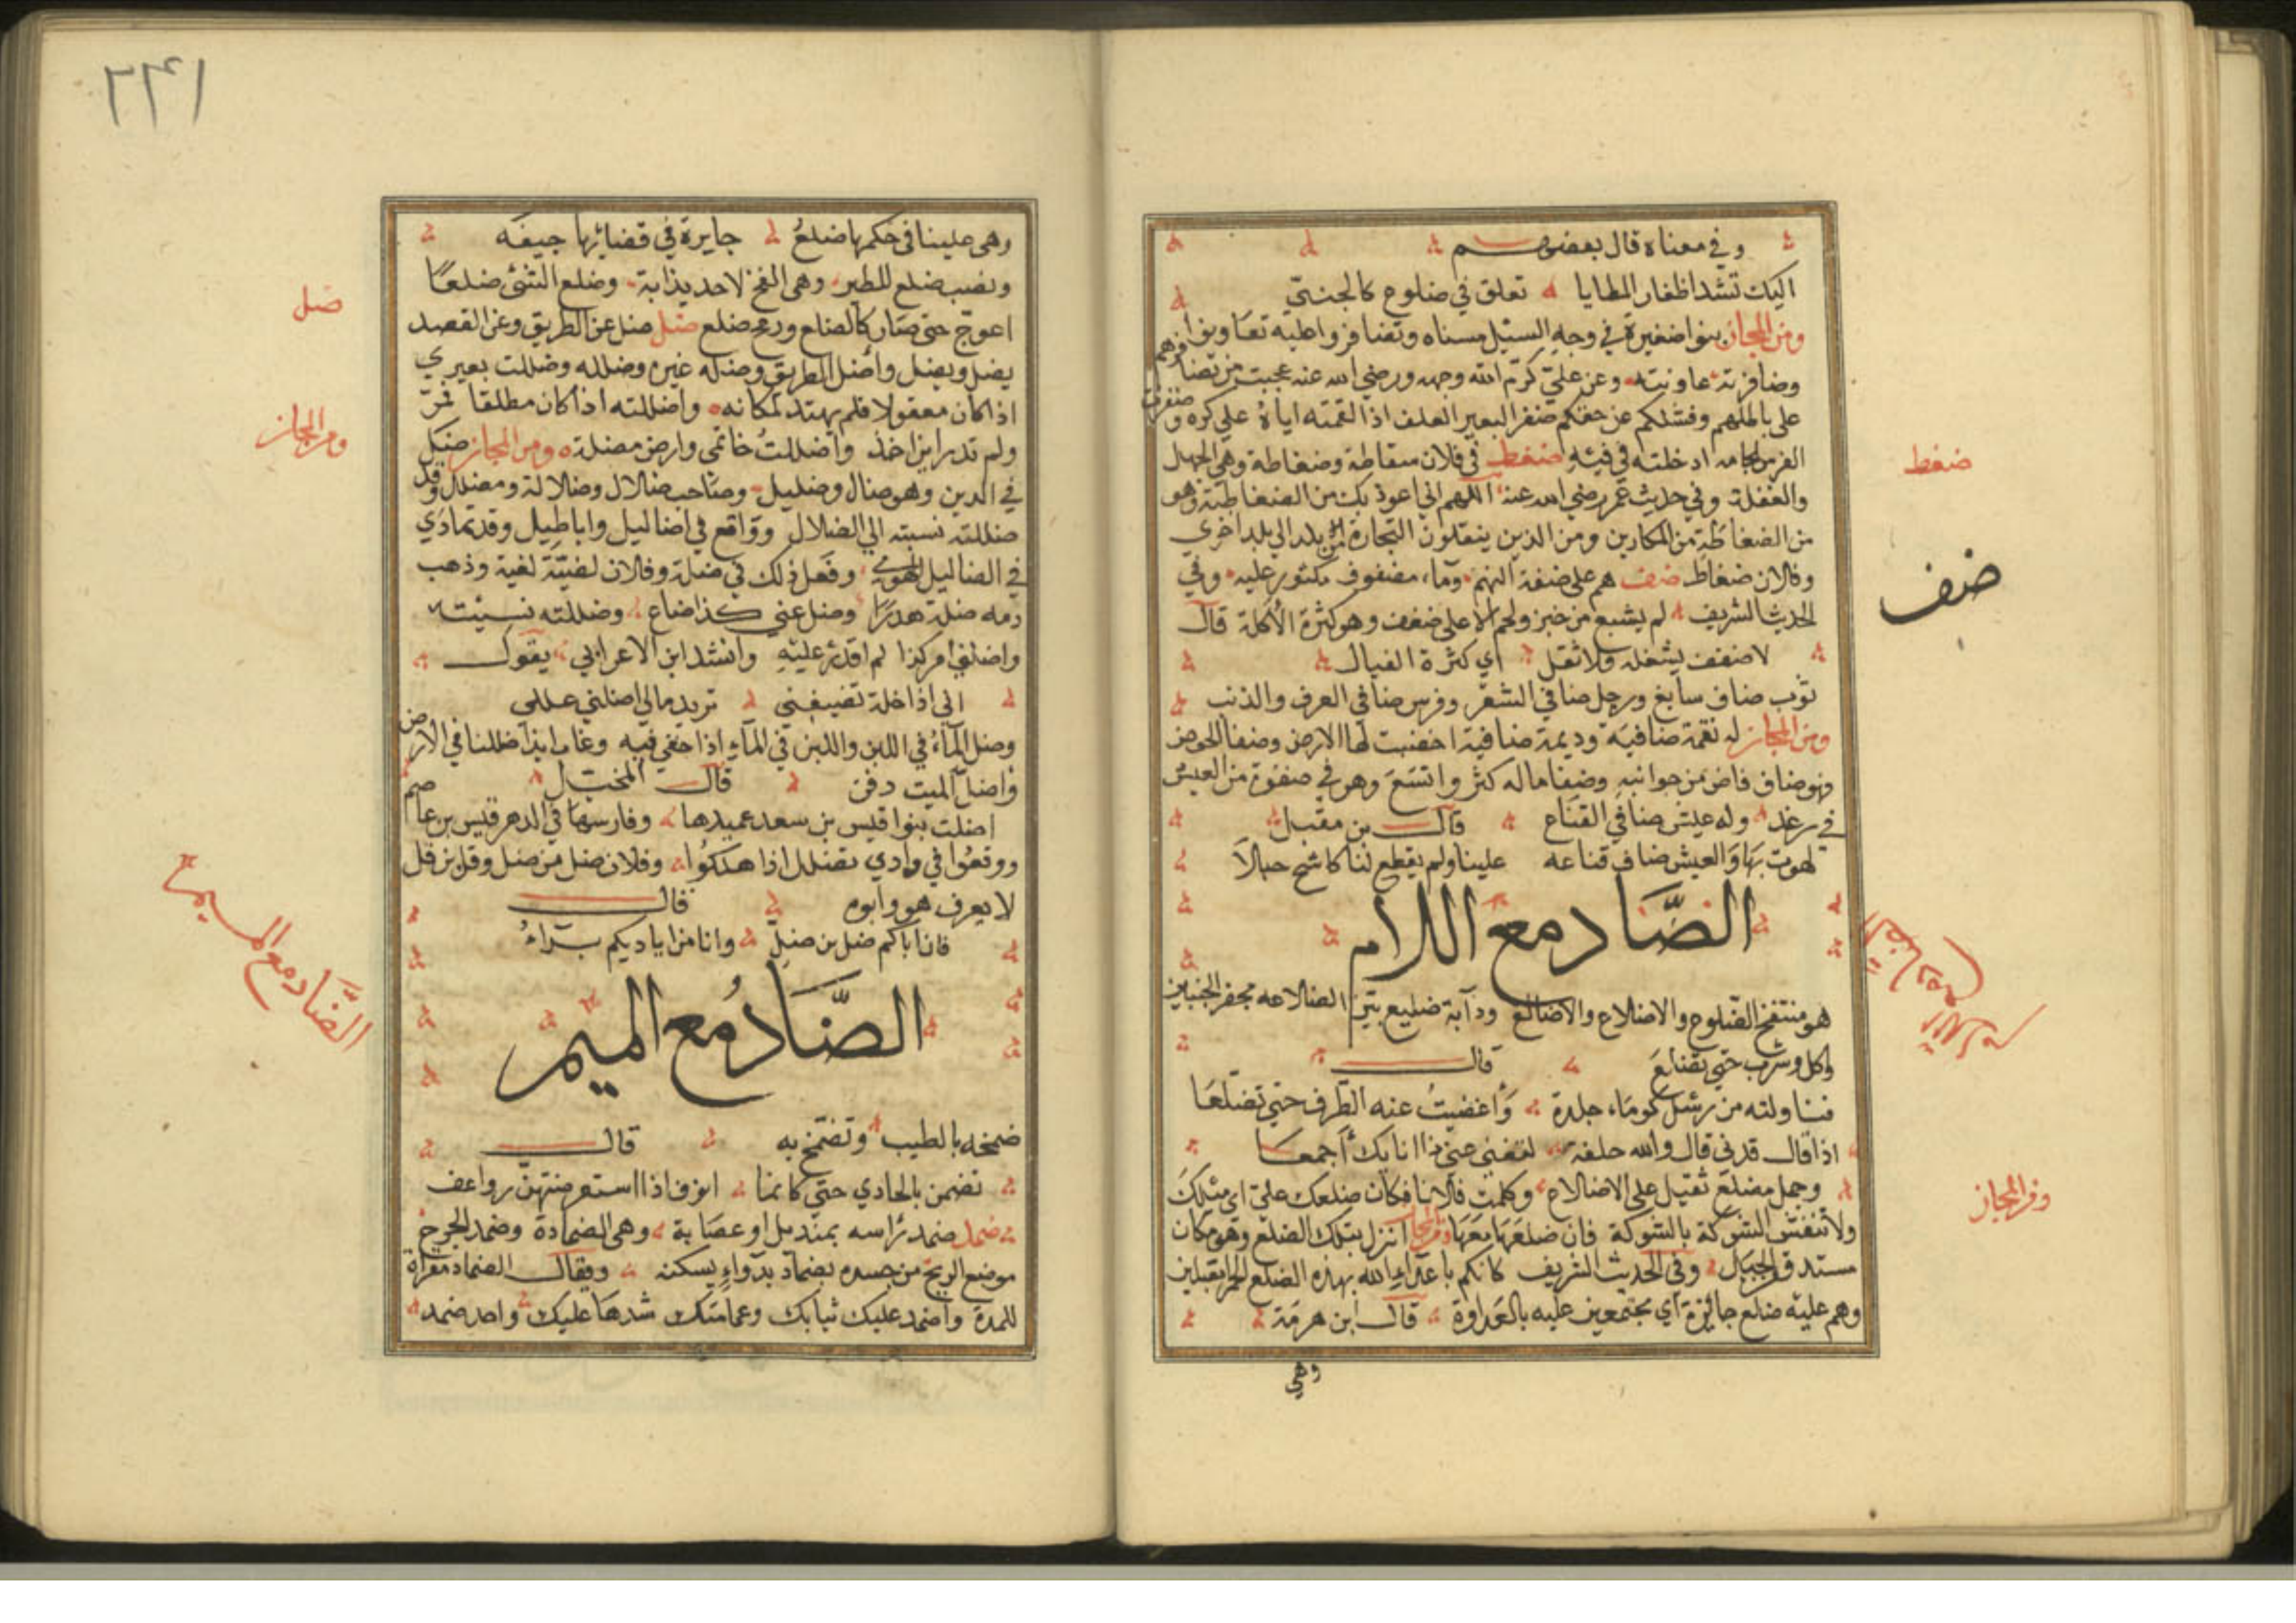 وفي معناه قال بعضهم
اليك تشد اظفار المطايا تعلق في ضلوع كالجنيّ
ومن المجاز بنوا ضفيرة في وجه السيل مسناه وتضافروا عليه تعاونوا
وضافرته عاونته وعن عليّ كرّم الله وجهه ورضي الله عنه عجبت من تضافرهم
على باطلهم وفشلكم عن حقكم ضفز البعير العلف اذا لقمته اياهُ على كره وضفزت
الفرس لجامه ادخلته في فيه ضغط في فلان سقاطة وضغاطة وهي الجهل
والغفلة وفي حديث عمر رضي الله عنه اللهم اني اعوذ بك من الضغاطة وهو
من الضغاطة من المكارين ومن الذين ينقلون التجارة من بلد الي بلد اخري
وفلان ضغاط ضف هم على ضفة النهر وماء مضفوف مكثور عليه وفي
الحديث الشريف لم يشبع من خبز ولحم الا على ضفف وهو كثرة الأكلة قال
لا ضفف يشغله ولا ثقل اي كثرة العيال
ثوب ضاف سابغ ورجل ضافي الشعر وفرس ضافي العرف والذنب
ومن المجاز له نعمة ضافية وديمة ضافية اخضبت لها الارض وضفا الحوض
وهو ضاف فاض من جوانبه وضفا ماله كثر واتسع وهو في ضفوة من العيش
في رغد وله عيش ضافي القناع قال بن مقبل
لهوت بها والعيش ضاف قناعه علينا ولم يقطع لنا كاشح حبالاً
الضَّاد مع اللام
هو منتفخ الضلوع والاضلاع والاضالع ودآبة ضليع بيّن الضلاعه مجفر الجنبين
واكل وشرب حتي تضلع قال
فناولته من رسل كوماء جلدة وأغضيتُ عنه الطرف حتي تضلعا
اذا قال قدني قال والله حلفة لتغني عني ذا انائك أجمعا
وحمل مضلع ثقيل على الاضلاع وكلمت فلانا فكان ضلعك عليّ اي ميلك
ولا تنقش الشوكة بالشوكة فان ضلعها معها ومن المجاز انزل بتلك الضلع وهو مكان
مستدق الجبال وفي الحديث الشريف كانكم يا عداء الله بهذه الضلع الحمر مقبلين
وهم عليه ضلع جائرة اي مجتمعين عليه بالعداوة قال ابن هرمة
وهي
ضغط
ضف
ومن المجاز
٢٤١
وهي علينا في حكمها ضلعُ جايرة في قضائها جيفه
ونصب ضلع للطير وهي الفخ لاحديذابة وضلع الشئ ضلعًا
اعوجّ حتي صار كالضلع ورمح ضلع ضل ضل عن الطريق وعن القصد
يضل ويضل وأضل الطريق وضله غيره وضلله وضللت بعيري
اذا كان معقولا فلم يهتد لمكانه واضللته اذا كان مطلقا فمرّ
ولم تدر اين اخذ واضللتُ خاتمي وارض مضلة ومن المجاز ضل
في الدين وهو ضال وضليل وصاحب ضلال وضلالة ومضلل وقد
ضللته نسبته الي الضلال ووَاقع في اضاليل واباطيل وقد تمادَي
في اضاليل الهوي وفعل ذلك في ضلة وفلان لغيّة لغية وذهب
دمه ضلة هدرًا وضل عني كذا ضاع وضللته نسيته
واضلني امر كذا لم اقدر عليه وانشد ابن الاعرابي يقول
اني اذا خلة تضيفني تريد مالي اضلني عللي
وضل المآءُ في اللبن واللبن في المآء اذا خفي فيه وغاب ايذا ضللنا في الأرض
واضل الميت دفن قال المخبّل
اضلت بنوا قيس بن سعد عميدها وفارسها في الدهر قيس بن عاصم
ووقعُوا في وادي تضلل اذا هلكوُا وفلان ضل من ضل وقل بن قل
لا يعرف هو وابوه قال
فان اباكم ضل بن ضلٍّ وانا من اياديكم برَآءُ
الضَّاد مع الميم
ضمخه بالطيب وتضمّخ به قال
تضمخن بالجادي حتي كانما انوف اذا استعرضتهن رواعف
ضمد ضمد رَاسه بمنديل او عصَابة وهي الضمادة وضمد الجرح
موضع الريح من جسده بضماد بدوَاءٍ يسكنه ويقال الضماد مقراة
للمدة واضمد عليك ثيابك وعمامتك شدها عليك واحد ضمد
ضل
ومن المجاز
الضَّاد مع الميم